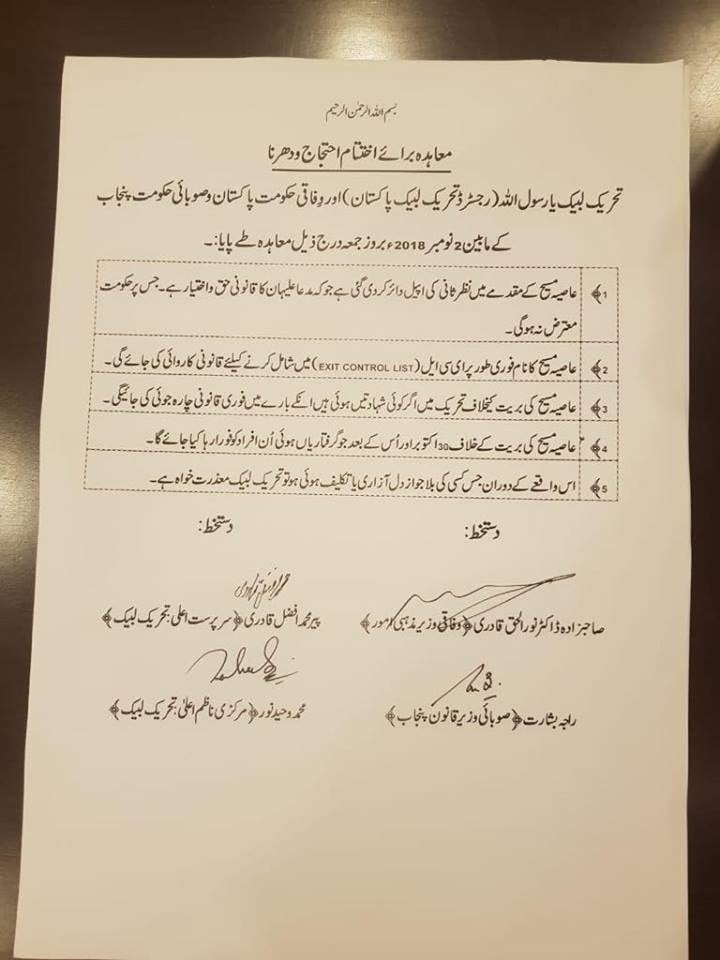 بسم اللہ الرحمٰن الرحیم
معاہدہ برائے اختتام احتجاج و دھرنا
تحریک لبیک یا رسول اللہ (رجسٹرڈ تحریک لبیک پاکستان) اور وفاقی حکومت پاکستان و صوبائی حکومت پنجاب
کے مابین 2 نومبر 2018ء بروز جمعہ درج ذیل معاہدہ طے پایا:۔
﴿1 عاصیہ مسیح کے مقدمے میں نظر ثانی کی اپیل دائر کر دی گئی ہے جو کہ مدعا علیہان کا قانونی حق و اختیار ہے۔ جس پر حکومت
معترض نہ ہوگی۔
﴿2 عاصیہ مسیح کا نام فوری طور پر ای سی ایل (EXIT CONTROL LIST) میں شامل کرنے کیلئے قانونی کاروائی کی جائے گی۔
﴿3 عاصیہ مسیح کی بریت کیخلاف تحریک میں اگر کوئی شہادتیں ہوئی ہیں انکے بارے میں فوری قانونی چارہ جوئی کی جائیگی۔
﴿4 عاصیہ مسیح کی بریت کے خلاف 30 اکتوبر اور اُس کے بعد جو گرفتاریاں ہوئی اُن افراد کو فوراً رہا کیا جائے گا۔
﴿5 اس واقعے کے دوران جس کسی کی بلا جواز دل آزاری یا تکلیف ہوئی ہو تو تحریک لبیک معذرت خواہ ہے۔
دستخط: دستخط:
صاحبزادہ ڈاکٹر نور الحق قادری ﴿وفاقی وزیر مذہبی امور﴾ پیر محمد افضل قادری ﴿سرپرست اعلی: تحریک لبیک﴾
راجہ بشارت ﴿صوبائی وزیر قانون پنجاب﴾ محمد وحید نور ﴿مرکزی ناظم اعلیٰ: تحریک لبیک﴾